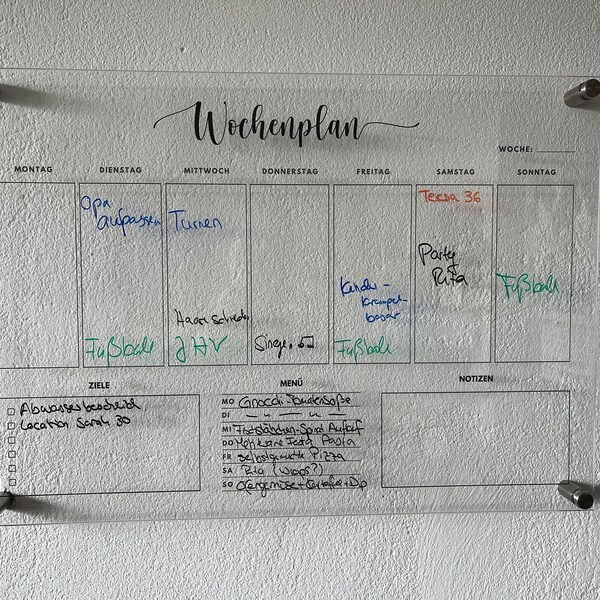 Wochenplan
WOCHE:
MONTAG DIENSTAG MITTWOCH DONNERSTAG FREITAG SAMSTAG SONNTAG
Opa
aufpassen
Fußball
Turnen
Haare schneiden
JHV
Singen
Kinder-
krempel-
basar
Fußball
Tessa 36
Party
Rita
Fußball
ZIELE
Abwasserbescheid
Location Sarah 30
MENÜ
MO Gnocchi-Tomatensoße
DI — " — " —
MI Fischstäbchen-Spinat Auflauf
DO Möhrchen Pasta
FR selbstgemachte Pizza
SA Rita (Wraps?)
SO Ofengemüse + Kartoffel + Dip
NOTIZEN